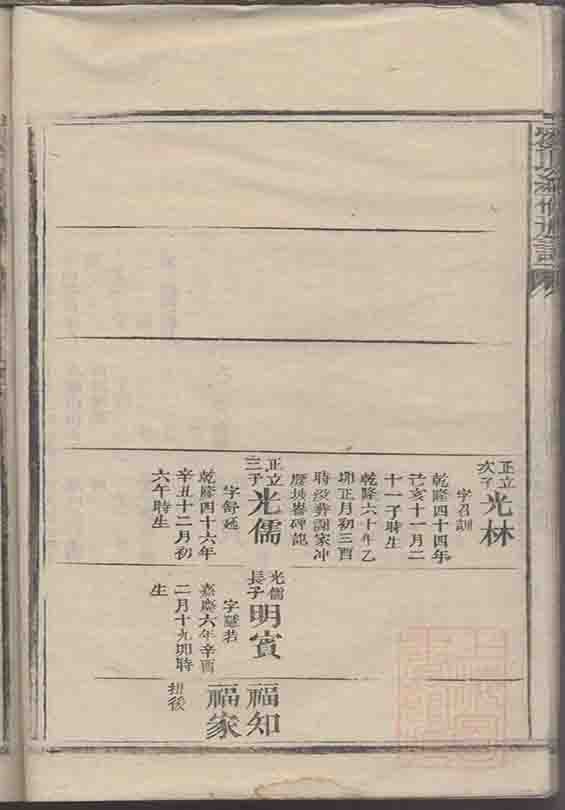 正立
次子
光林
字召訓
乾隆四十四年
己亥十一月二
十一子時生
乾隆六十年乙
卯正月初三酉
時歿葬謝家冲
正立
三子
光儒
字舒延
乾隆四十六年
辛丑十二月初
六午時生
光儒
長子
明賓
字懸若
嘉慶六年辛酉
二月十九卯時
生
福知
福家